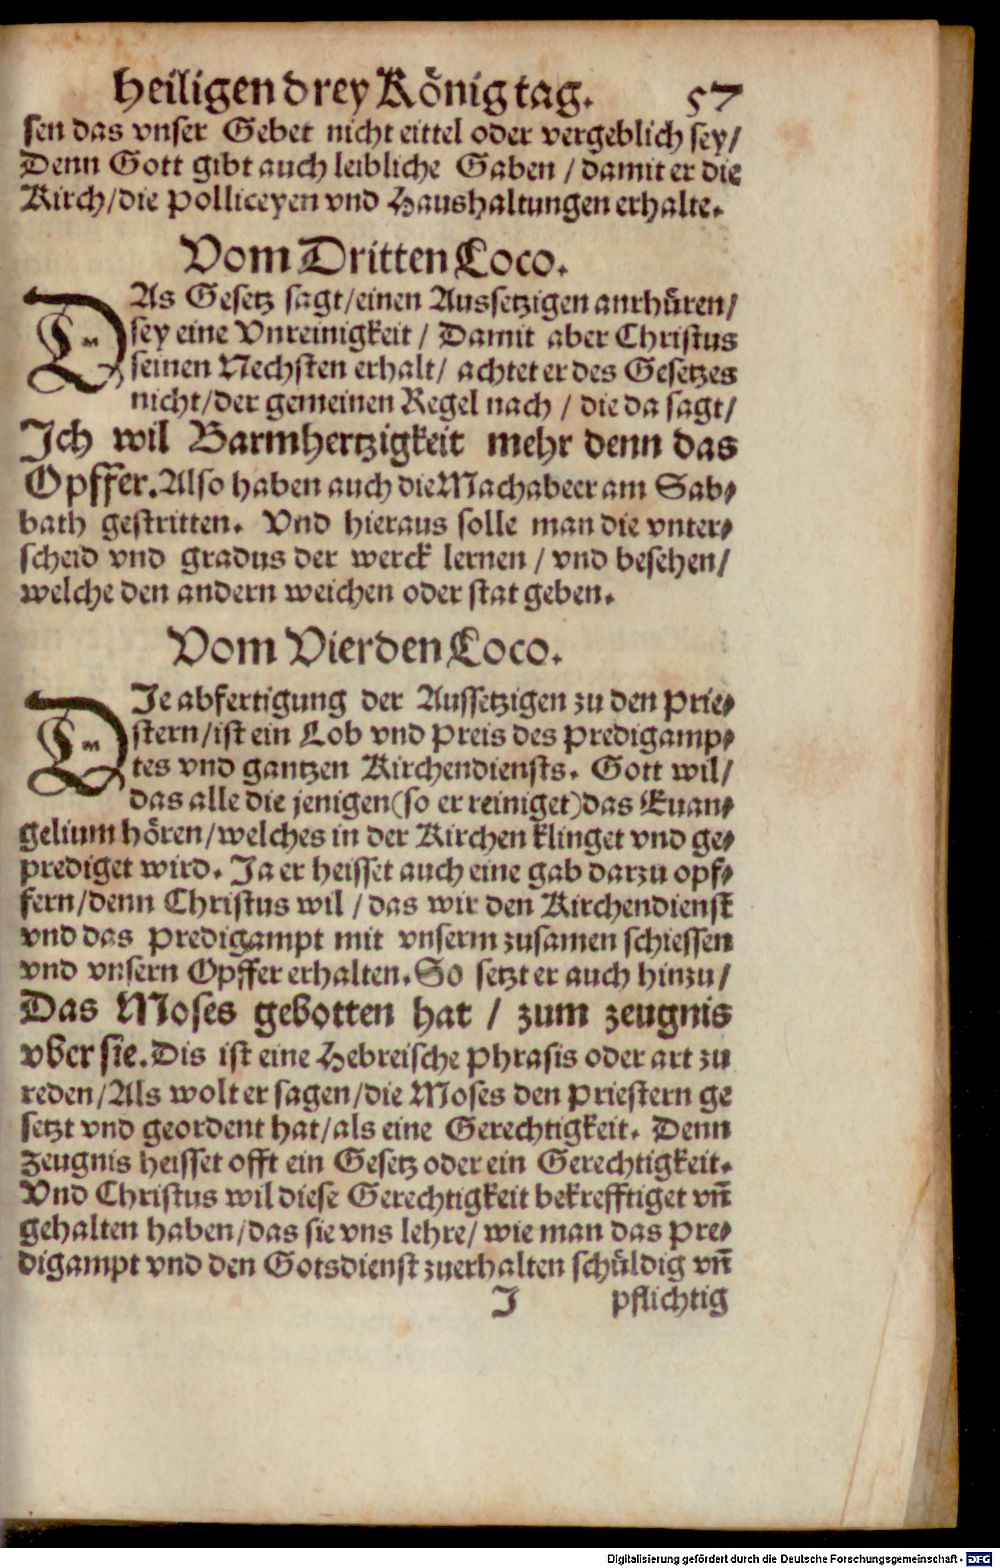 heiligen drey Koͤnig tag. 57
sen das vnser Gebet nicht eittel oder vergeblich sey/
Denn Gott gibt auch leibliche Gaben / damit er die
Kirch/die Polliceyen vnd Haushaltungen erhalte.
Vom Dritten Loco.
DAs Gesetz sagt/einen Aussetzigen anrhuͤren/
sey eine Vnreinigkeit / Damit aber Christus
seinen Nechsten erhalt/ achtet er des Gesetzes
nicht/der gemeinen Regel nach / die da sagt/
Ich wil Barmhertzigkeit mehr denn das
Opffer. Also haben auch die Machabeer am Sab⸗
bath gestritten. Vnd hieraus solle man die vnter⸗
scheid vnd gradus der werck lernen / vnd besehen/
welche den andern weichen oder stat geben.
Vom Vierden Loco.
DIe abfertigung der Aussetzigen zu den Prie⸗
stern/ist ein Lob vnd Preis des Predigamp⸗
tes vnd gantzen Kirchendiensts. Gott wil/
das alle die jenigen(so er reiniget)das Euan⸗
gelium hoͤren/welches in der Kirchen klinget vnd ge⸗
prediget wird. Ja er heisset auch eine gab darzu opf⸗
fern/denn Christus wil / das wir den Kirchendienst
vnd das Predigampt mit vnserm zusamen schiessen
vnd vnsern Opffer erhalten. So setzt er auch hinzu/
Das Moses gebotten hat / zum zeugnis
vber sie. Dis ist eine Hebreische Phrasis oder art zu
reden/Als wolt er sagen/die Moses den Priestern ge
setzt vnd geordent hat/als eine Gerechtigkeit. Denn
Zeugnis heisset offt ein Gesetz oder ein Gerechtigkeit.
Vnd Christus wil diese Gerechtigkeit bekrefftiget vn̄
gehalten haben/das sie vns lehre/ wie man das Pre⸗
digampt vnd den Gotsdienst zuerhalten schuͤldig vn̄
J pflichtig
Digitalisierung gefördert durch die Deutsche Forschungsgemeinschaft - DFG